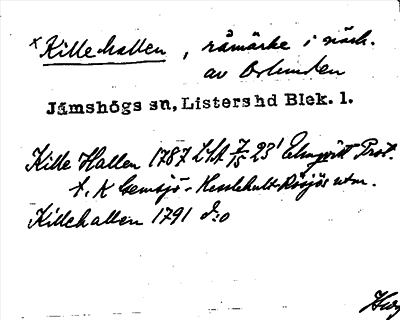 ×Killehallen, råmärke i närh.
av Orlunden
Jämshögs sn, Listers hd Blek. l.
Kille Hallen 1787 LSA 7/15 23' Prot.
f. K Gemsjö - Hesslehult utm.
Killehallen 1791 d:o